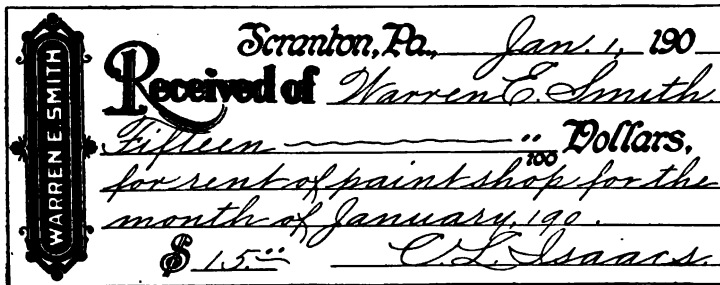 WARREN E. SMITH
Scranton, Pa., Jan. 1, 190
Received of Warren E. Smith.
Fifteen "/100 Dollars,
for rent of paint shop for the
month of January, 190.
$ 15.00 C. L. Isaacs.